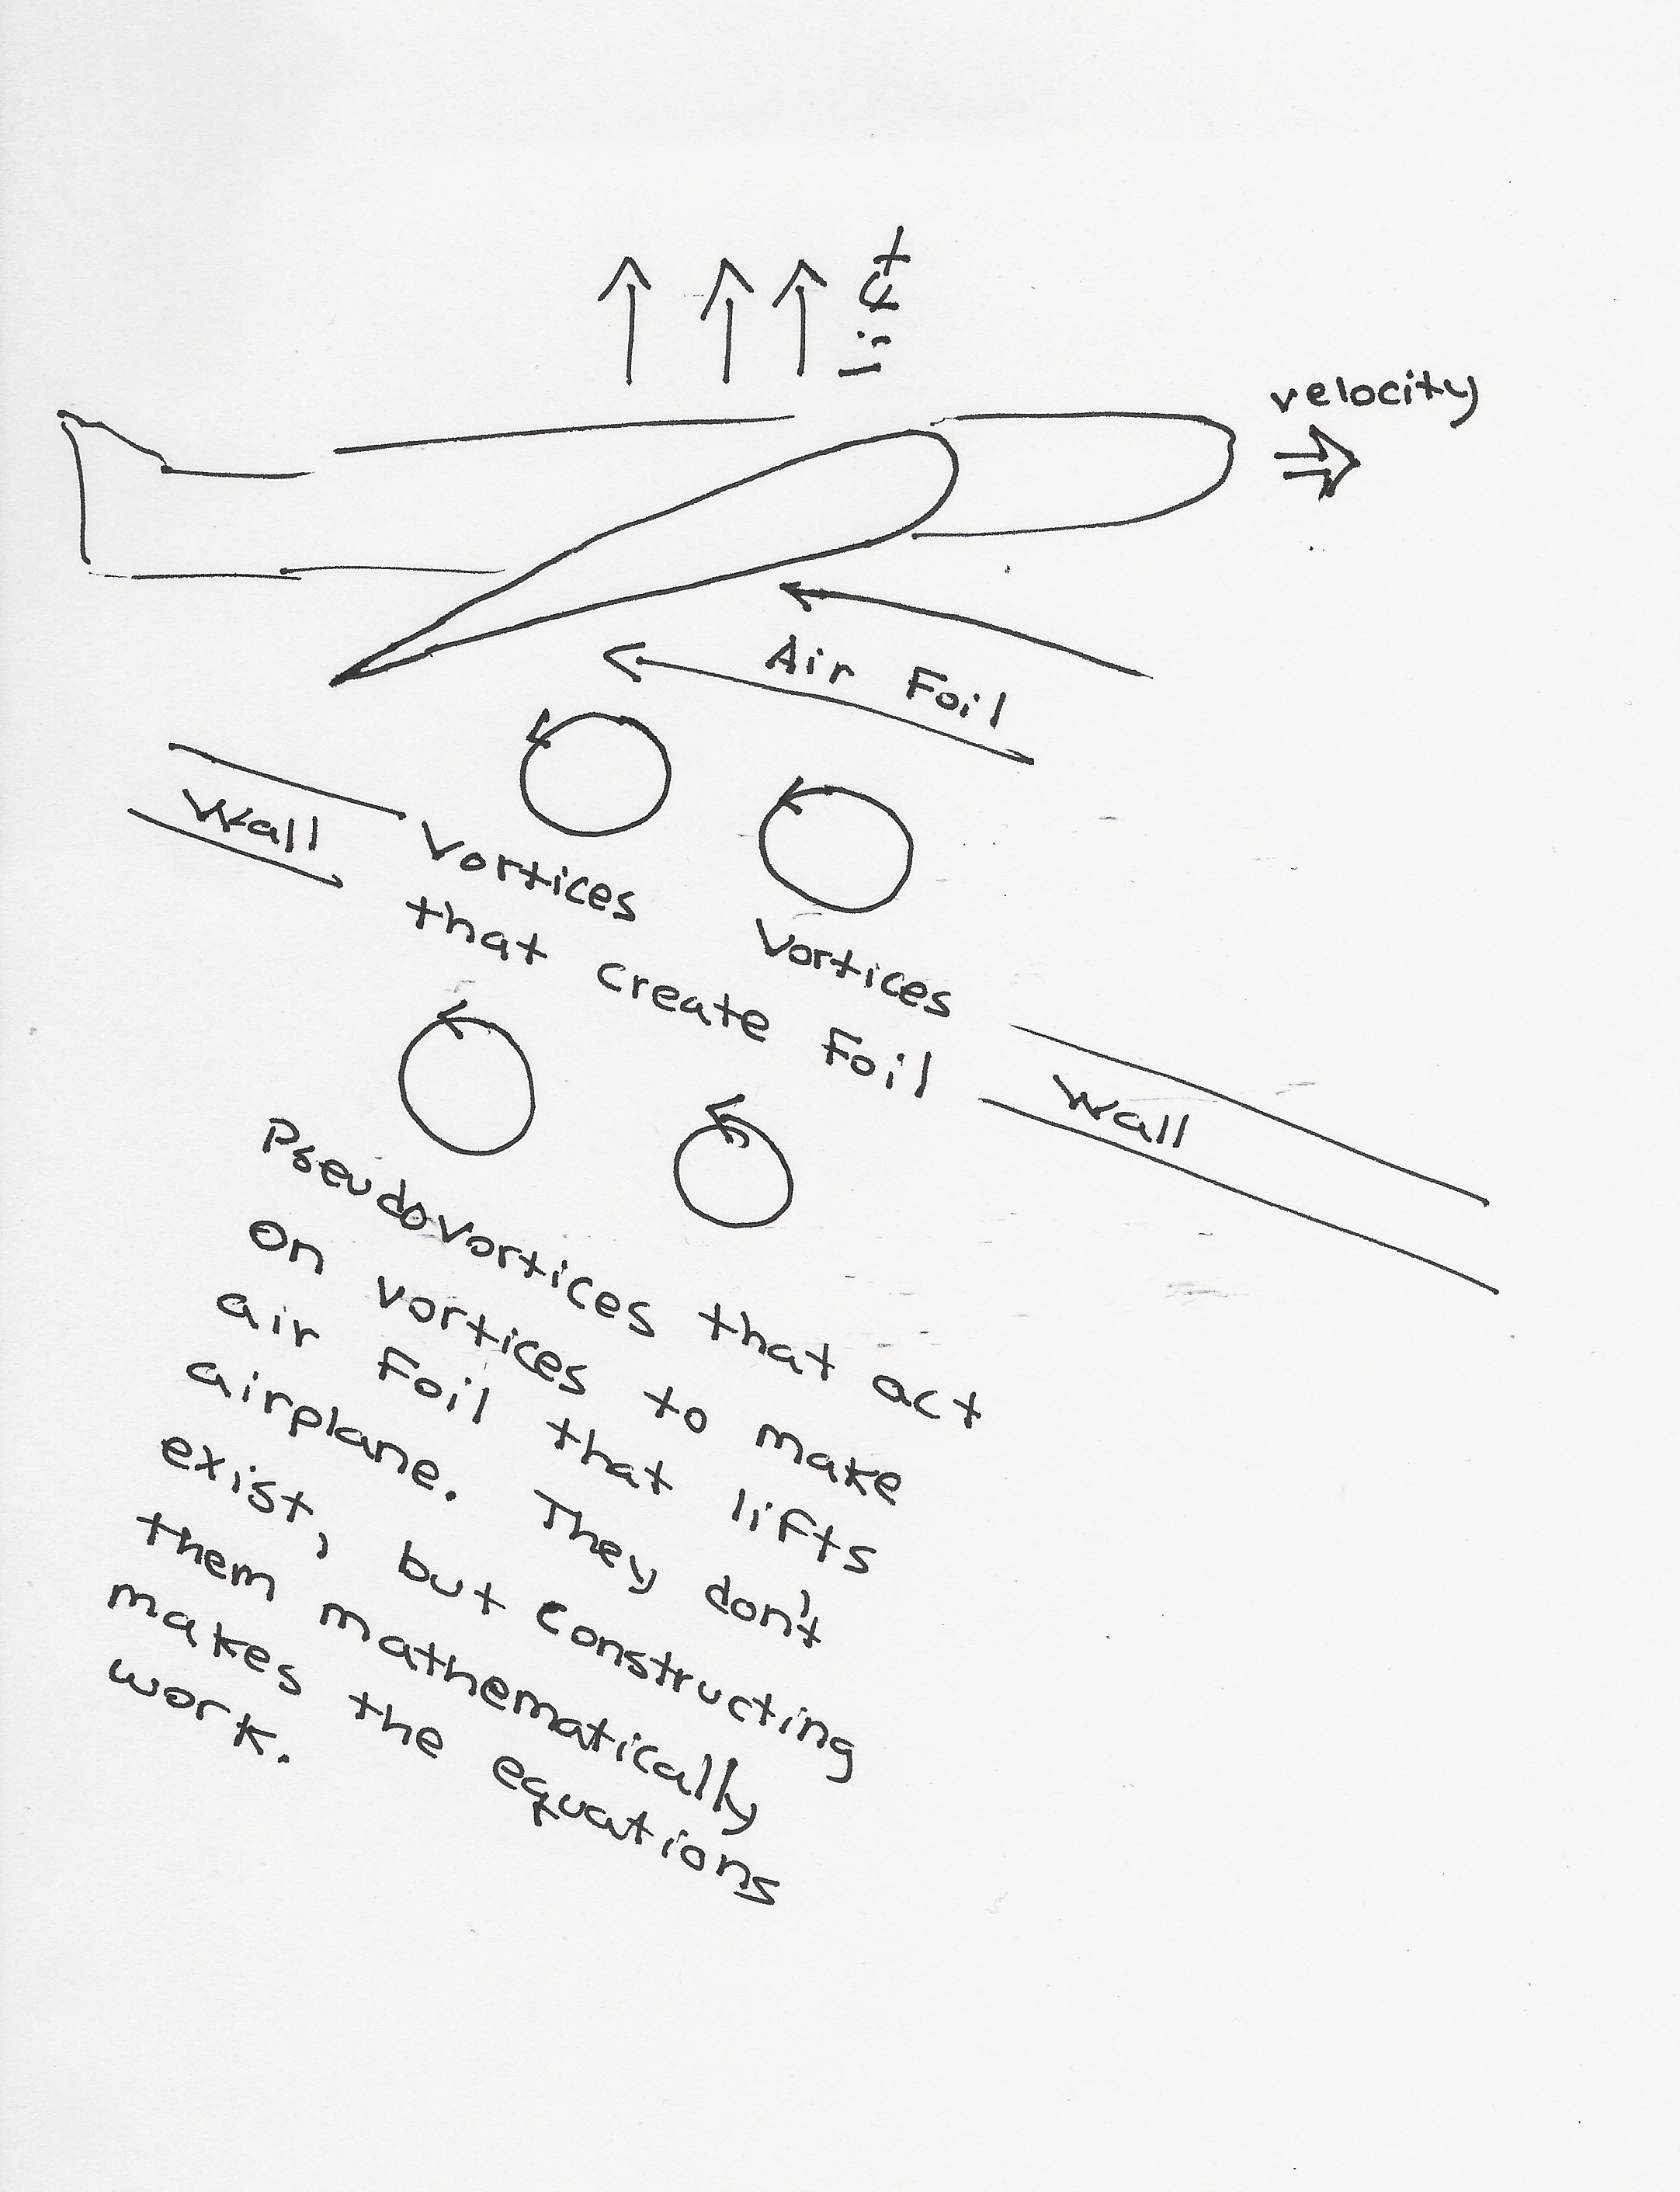 lift
velocity
Air Foil
Wall
Vortices
that create Foil
Vortices
Wall
Pseudovortices that act
on vortices to make
air Foil that lifts
airplane. They don't
exist, but constructing
them mathematically
makes the equations
work.